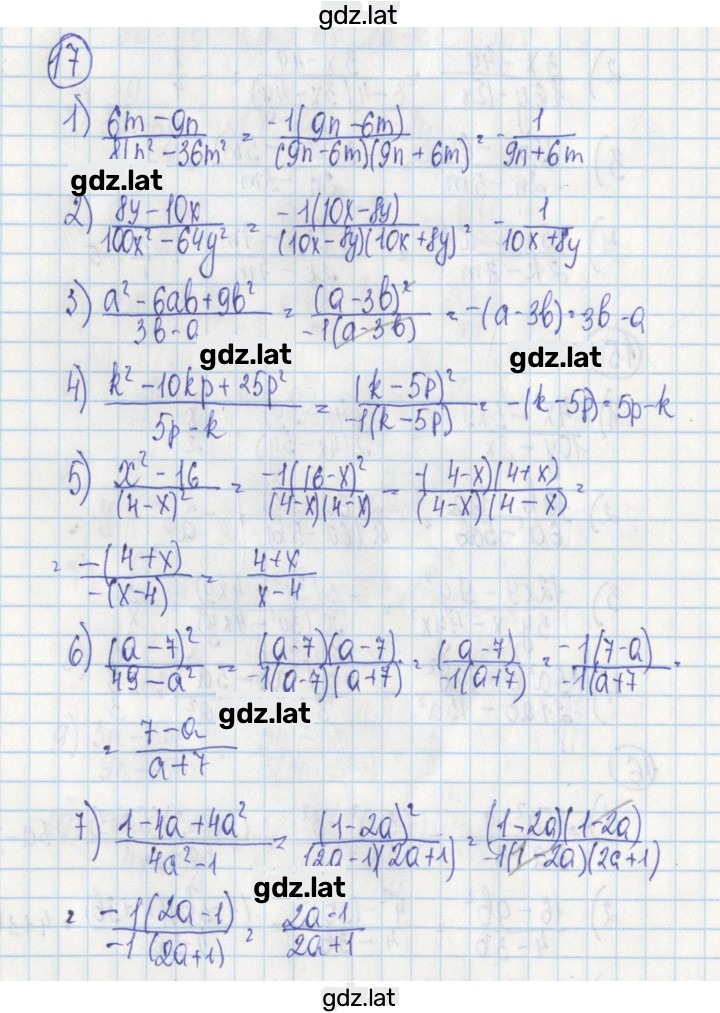 gdz.lat
17
1) (6m - 9n)/(81n² - 36m²) = (-1(9n - 6m))/((9n - 6m)(9n + 6m)) = - 1/(9n + 6m)
gdz.lat
2) (8y - 10x)/(100x² - 64y²) = (-1(10x - 8y))/((10x - 8y)(10x + 8y)) = - 1/(10x + 8y)
3) (a² - 6ab + 9b²)/(3b - a) = (a - 3b)²/(-1(a - 3b)) = -(a - 3b) = 3b - a
gdz.lat gdz.lat
4) (k² - 10kp + 25p²)/(5p - k) = (k - 5p)²/(-1(k - 5p)) = -(k - 5p) = 5p - k
5) (x² - 16)/(4 - x)² = (-1(16 - x)²)/((4 - x)(4 - x)) = (-(4 - x)(4 + x))/((4 - x)(4 - x)) =
= (-(4 + x))/(-(x - 4)) = (4 + x)/(x - 4)
6) (a - 7)²/(49 - a²) = ((a - 7)(a - 7))/(-1(a - 7)(a + 7)) = (a - 7)/(-1(a + 7)) = (-1(7 - a))/(-1(a + 7) =
gdz.lat
= (7 - a)/(a + 7)
7) (1 - 4a + 4a²)/(4a² - 1) = (1 - 2a)²/((2a - 1)(2a + 1)) = ((1 - 2a)(1 - 2a))/(-1(1 - 2a)(2a + 1))
gdz.lat
= (-1(2a - 1))/(-1(2a + 1)) = (2a - 1)/(2a + 1)
gdz.lat